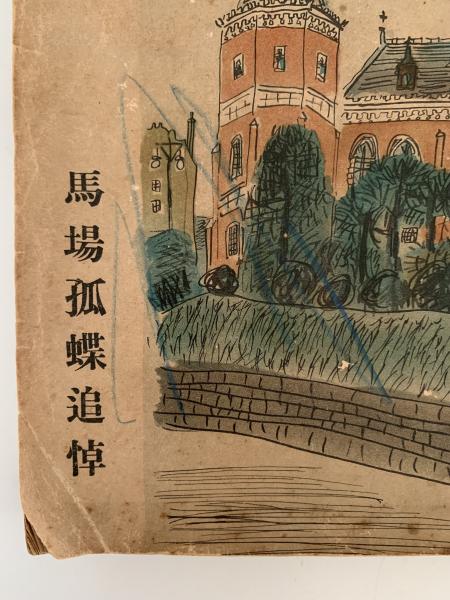 馬場孤蝶追悼